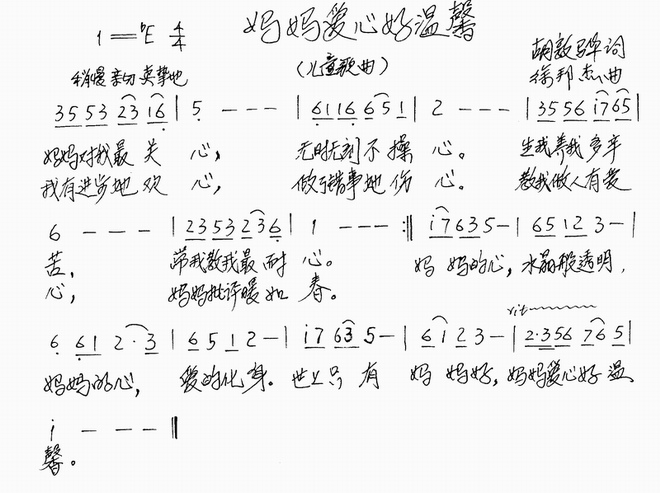 妈妈爱心好温馨
1=♭E 4/4
(儿童歌曲)
词
稍慢 亲切 真挚地
徐邦杰 曲
3553 23 16 | 5 - - - | 6116 6 5 1 | 2 - - - | 3556 i765 |
妈妈对我最关心, 无时无刻不操心。 生我养我多辛
我有进步她欢心, 做了错事她伤心。 教我做人有爱
6 - - - | 2353 236 | 1 - - - :‖ i7635- | 6512 3- |
苦, 带我教我最耐心。 妈妈的心, 水晶般透明,
心, 妈妈批评暖如春。
rit
6 61 2·3 | 6512- | i7 63 5- | 6i23- | 2·356 765 |
妈妈的心, 爱的化身。世上只有妈妈好, 妈妈爱心好温
i - - - ‖
馨。